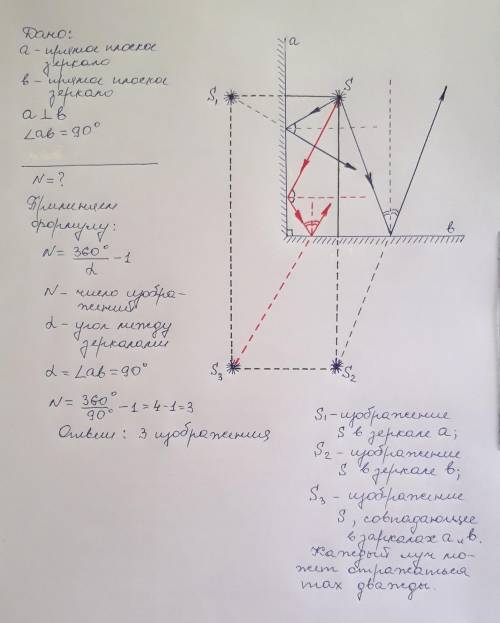 Дано:
а - прямое плоское
зеркало
в - прямое плоское
зеркало
а ⊥ в
∠ав = 90°
N = ?
Применяем
формулу:
N = 360°/α - 1
N - число изобра-
жений
α - угол между
зеркалами
α = ∠ав = 90°
N = 360°/90° - 1 = 4 - 1 = 3
Ответ: 3 изображения
а
S₁
S
в
S₃
S₂
S₁ - изображение
S в зеркале а;
S₂ - изображение
S в зеркале в;
S₃ - изображение
S, совпадающее
в заркалах а и в.
Каждый луч мо-
жет отражаться
там дважды.